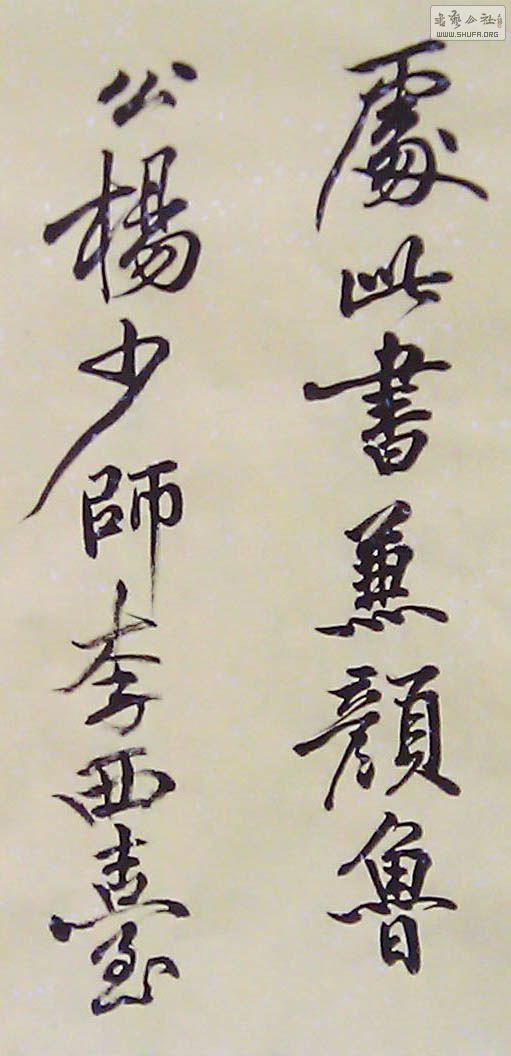 處此書兼顏魯
公楊少師李西臺
書藝公社
WWW.SHUFA.ORG